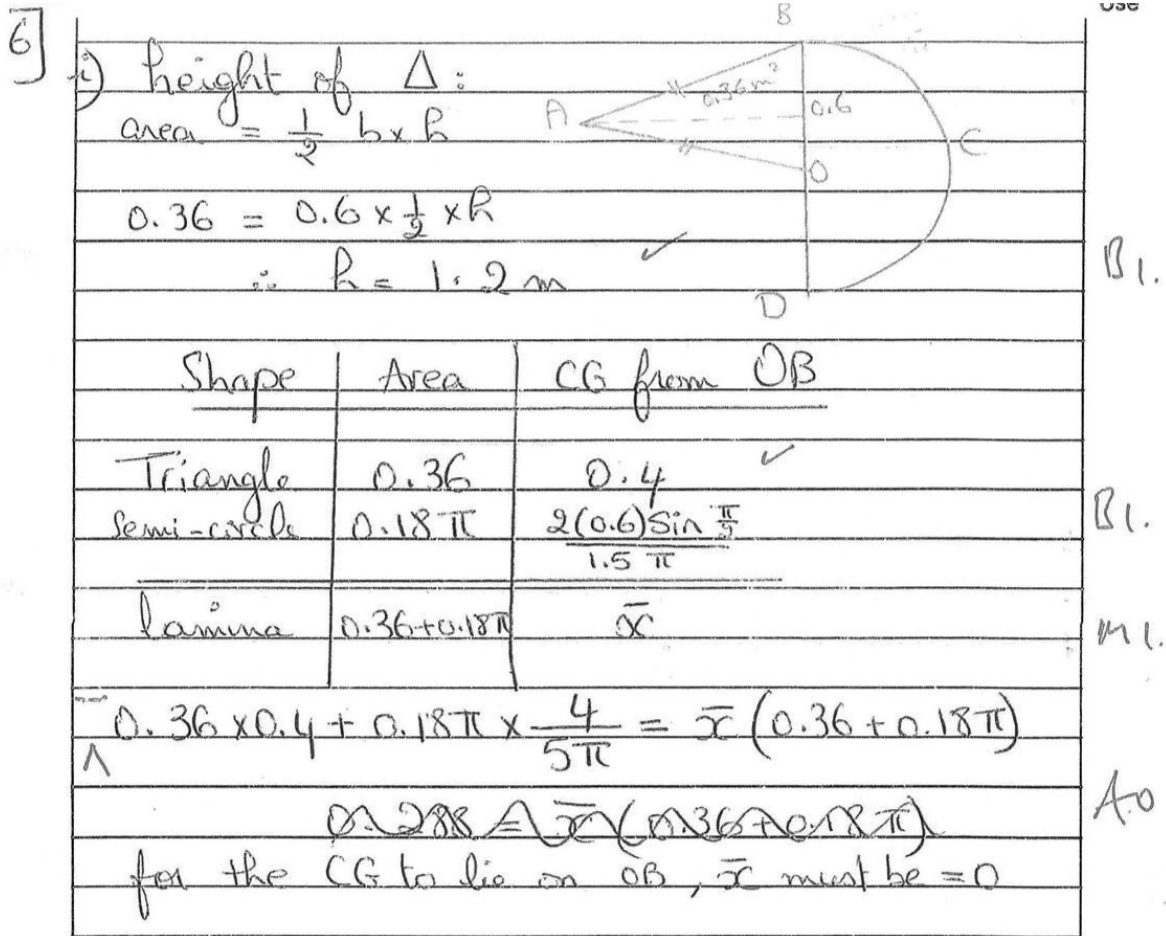 Use
6]
B
i) height of Δ:
0.36m²
A
0.6
area = 1/2 b x h
C
O
0.36 = 0.6 x 1/2 x h
∴ h = 1.2 m ✓
B1.
D
Shape | Area | CG from OB
Triangle | 0.36 | 0.4 ✓
Semi-circle | 0.18π | 2(0.6)Sin π/2 / 1.5 π
B1.
lamina | 0.36+0.18π | x̄
M1.
0.36 x0.4 + 0.18π x 4/5π = x̄ (0.36 + 0.18π)
A0
0.288 = x̄ (0.36+0.18π)
for the CG to lie on OB, x̄ must be = 0